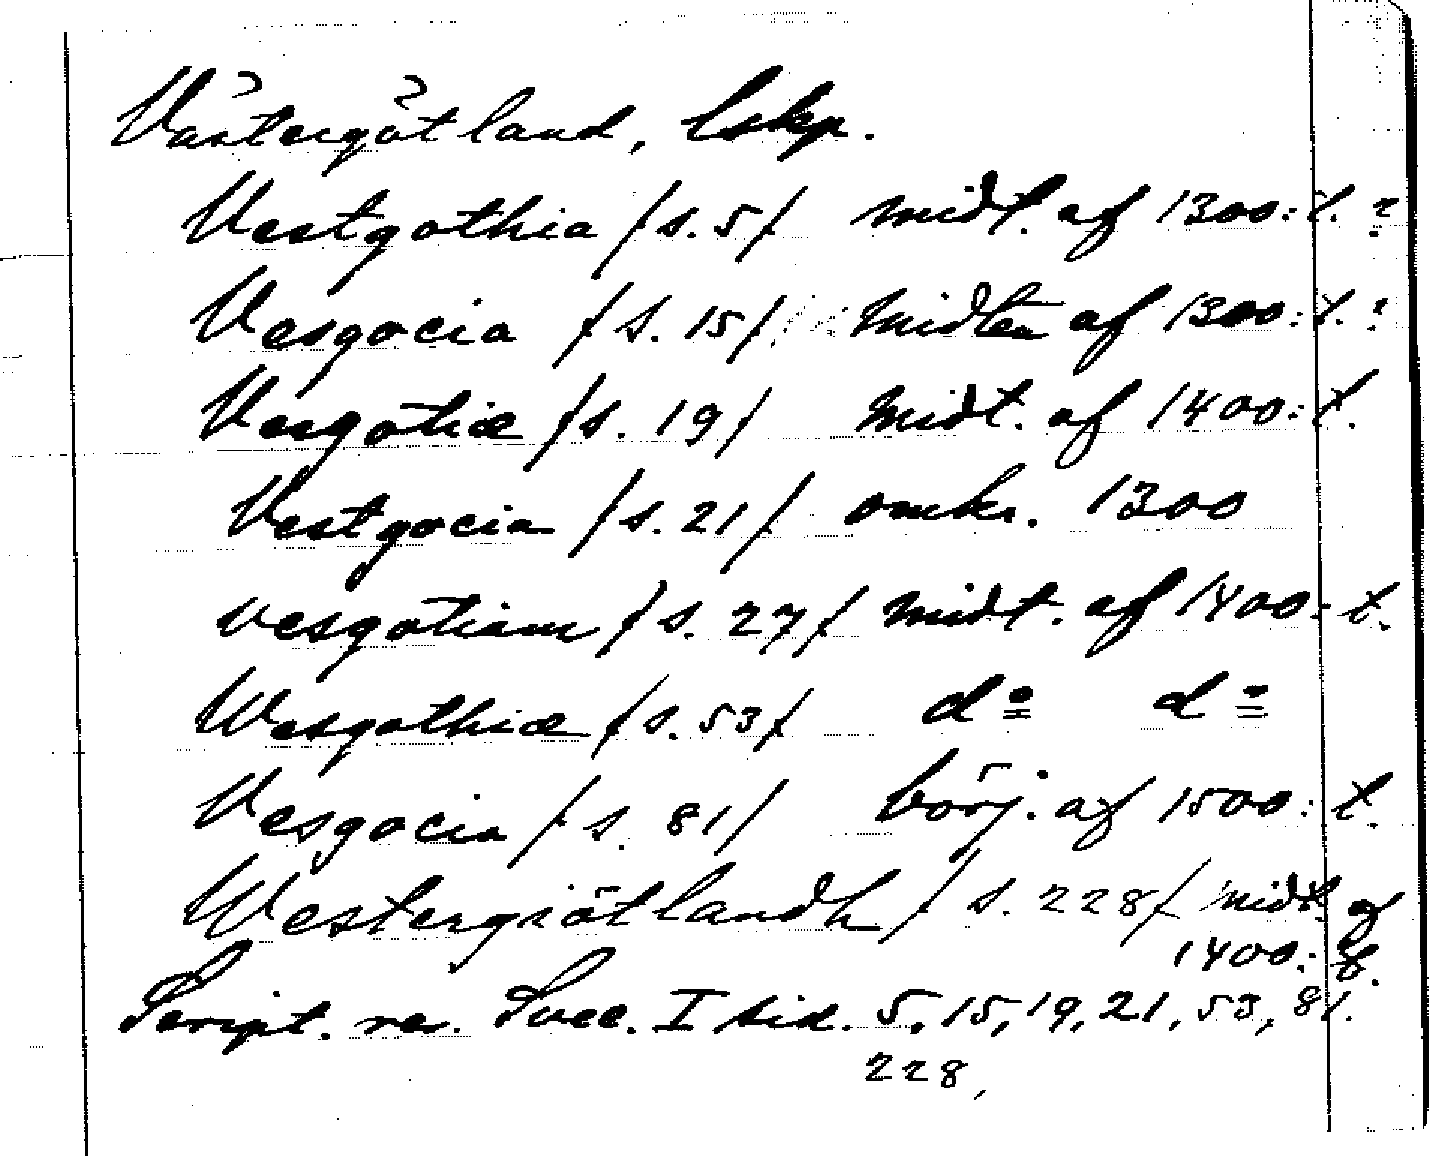 Västergötland, lskp.
Vestgothia /s. 5/ midt. af 1300:t. ?
Vesgocia /s. 15/ midten af 1300:t. ?
Vesgotiæ /s. 19/ midt. af 1400:t.
Vestgocia /s. 21/ omkr. 1300
vesgotiam /s. 27/ midt. af 1400:t.
Wesgothiæ /s. 53/ do do
Vesgocia /s. 81/ börj. af 1500:t.
Westergiötlandh /s. 228/ midt. af
1400:t.
Script. rer. Svec. I sid. 5, 15, 19, 21, 53, 81.
228,